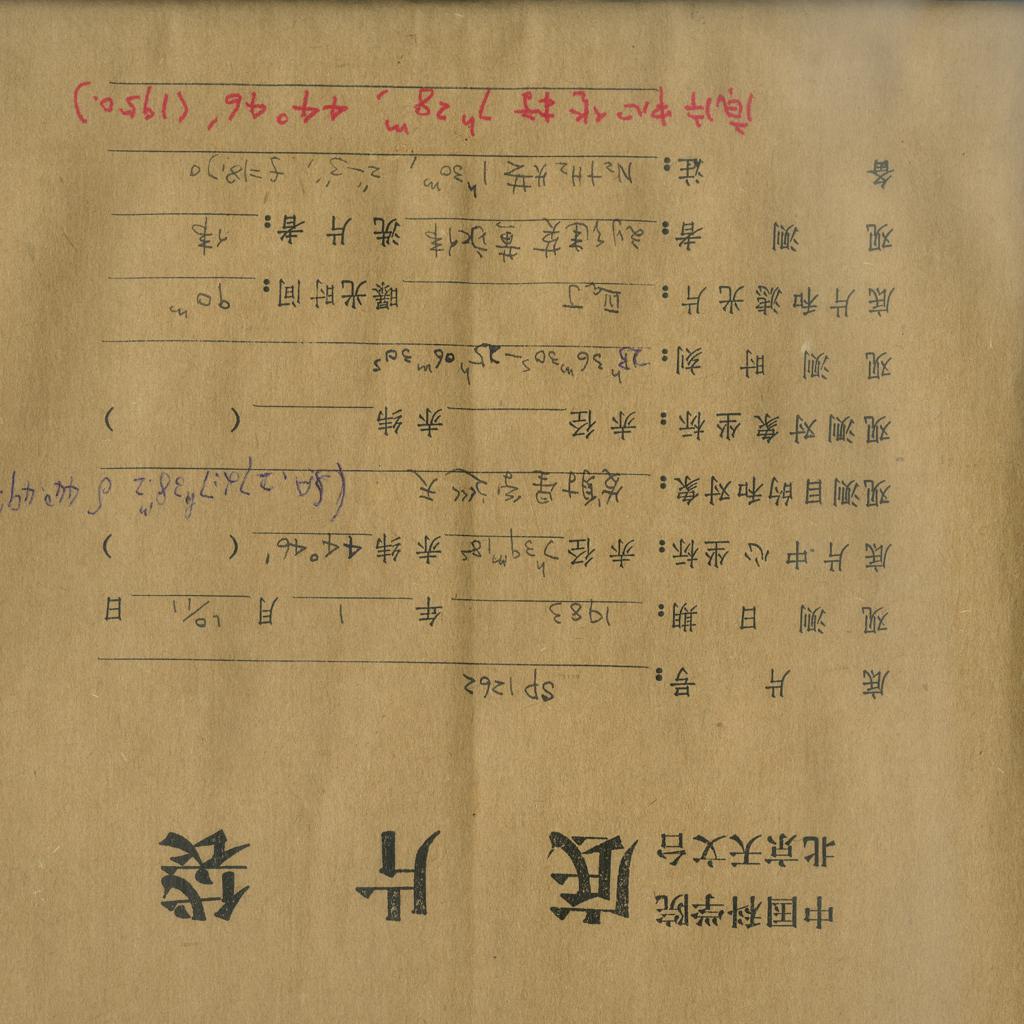 中国科学院
北京天文台
底片袋
底片号: SP1262
观测日期: 1983年1月10/11日
底片中心坐标: 赤径7h39m18s赤纬44°46′( )
观测目的和对象: 发射星系巡天 (SA. 27 α:7h38m.2 δ 44°.49′
观测对象坐标: 赤径 赤纬 ( )
观测时刻: 23h36m30s—25h06m30s
底片和滤光片: 曝光时间: 90m
观测者: 黄永 洗片者:
备注: N2+H2 1h30m, 2″-3″,
底片中心 7h28m, 44°46′ (1950.)